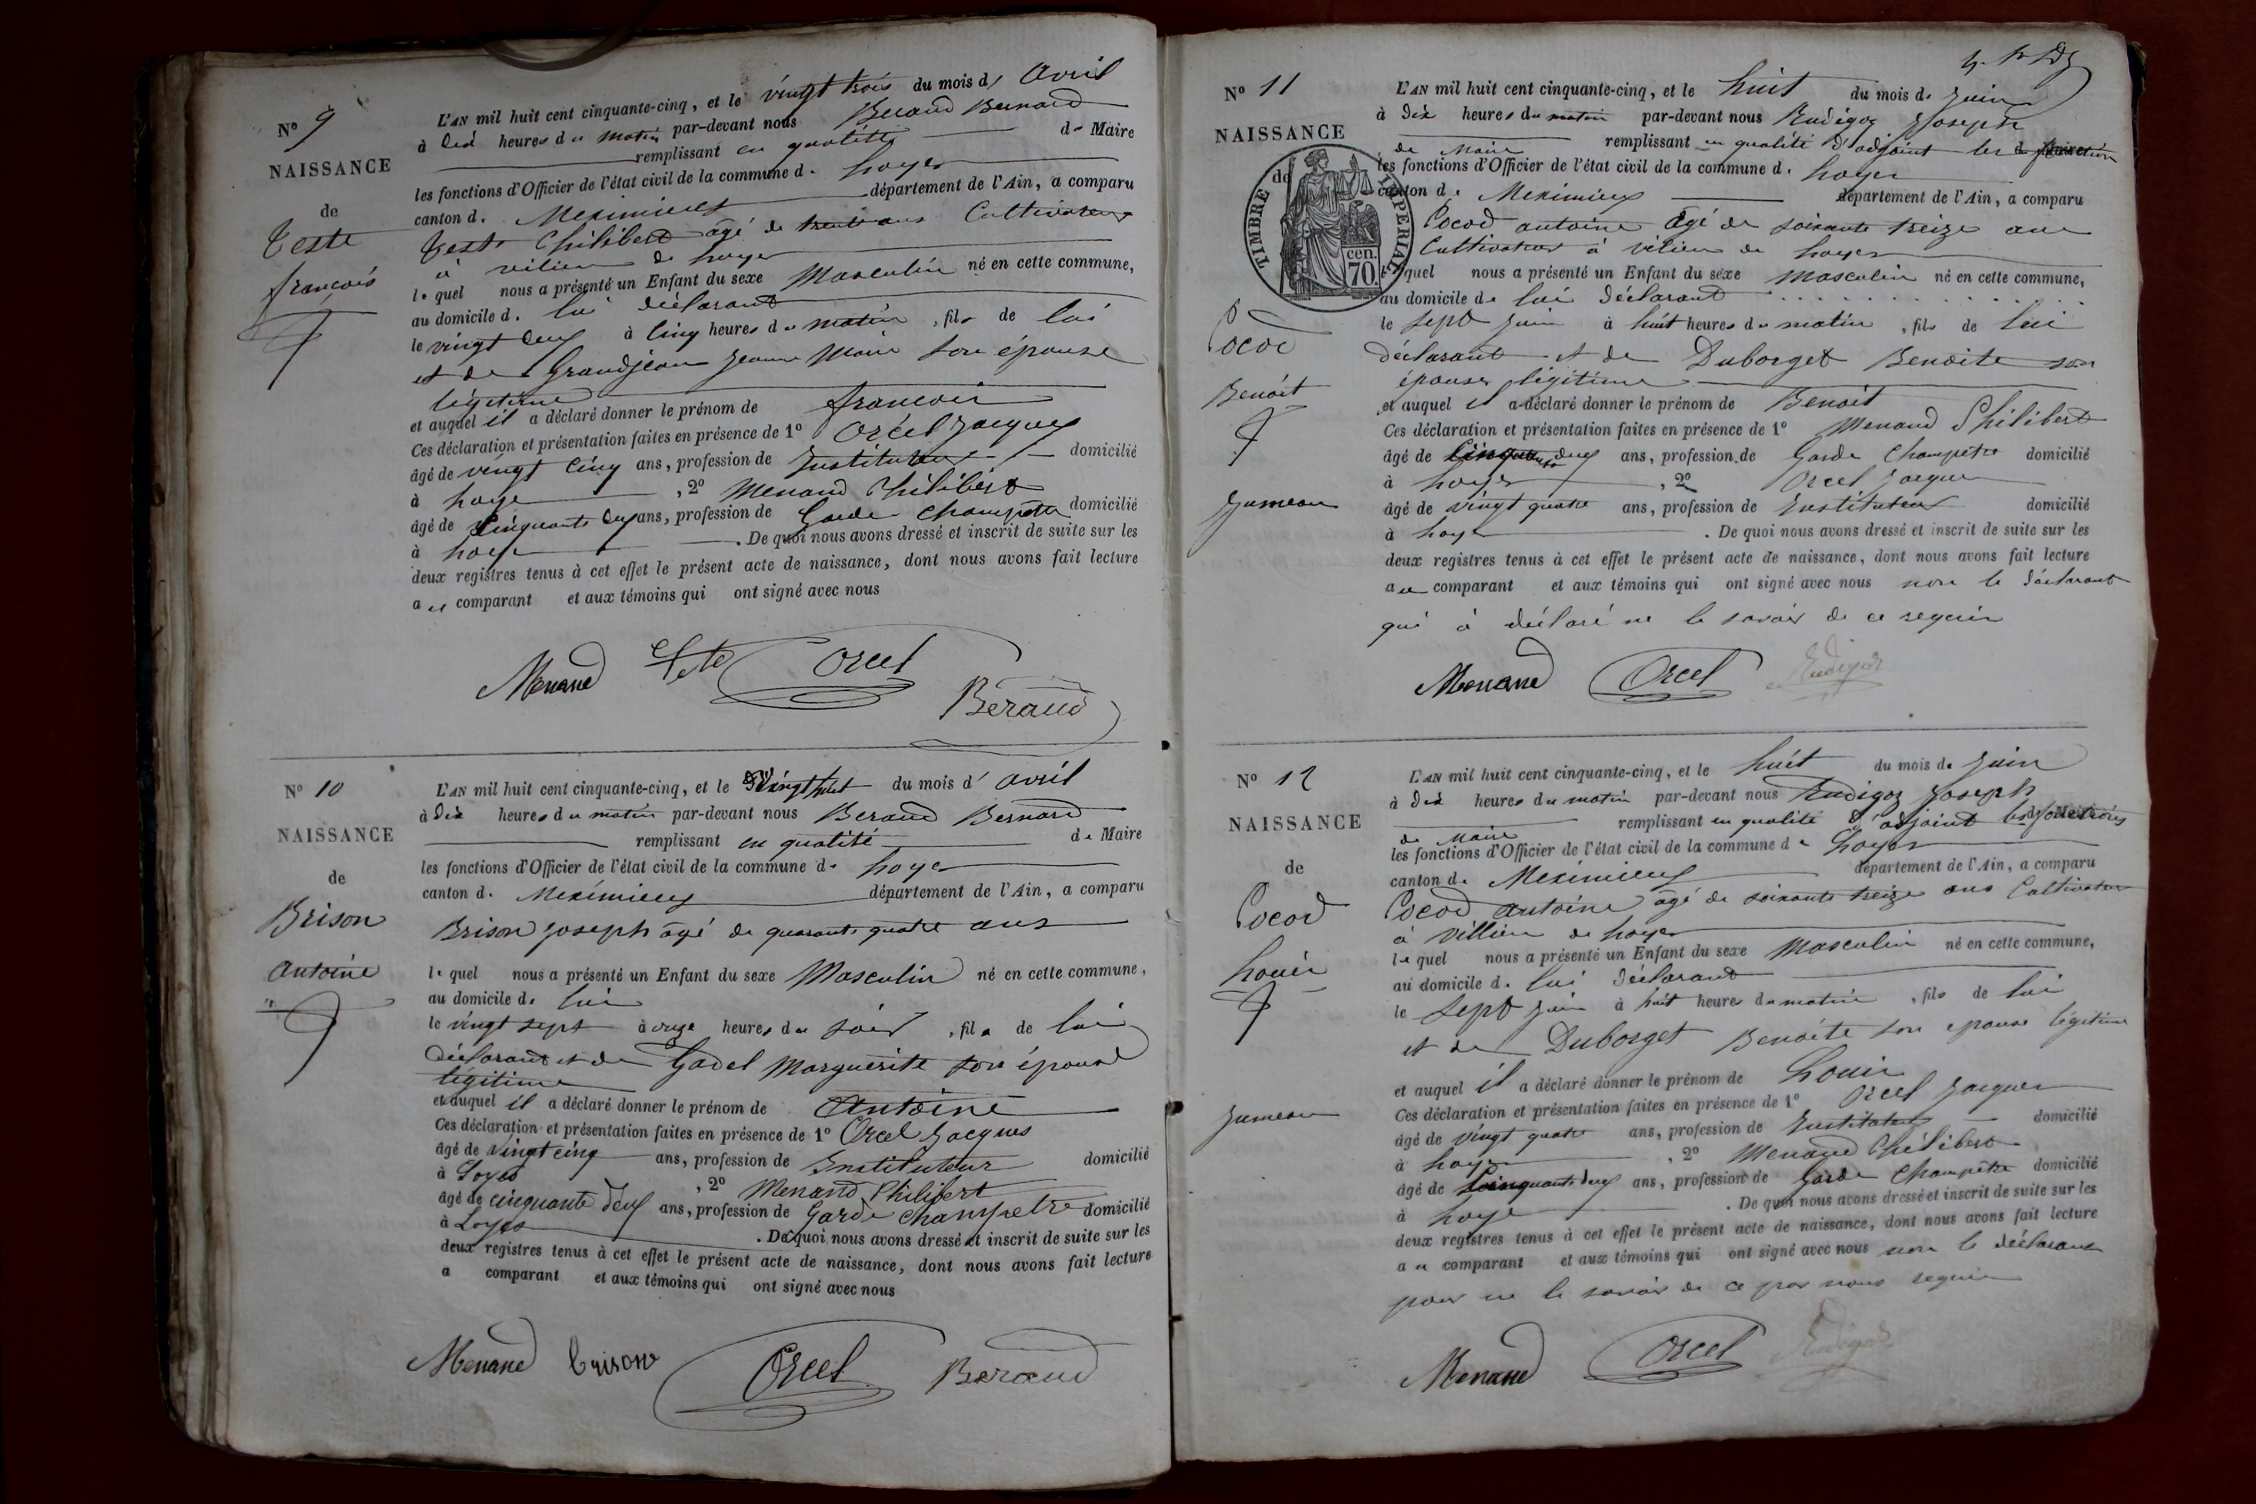 N° 9
NAISSANCE
de
Teste
françois
L'AN mil huit cent cinquante-cinq, et le vingt trois du mois d' Avril
à dix heures du matin par-devant nous Beraud Bernard
remplissant en qualité de Maire
les fonctions d'Officier de l'état civil de la commune de Loyes
canton de Meximieux département de l'Ain, a comparu
Teste Philibert agé de trente ans Cultivateur
à vilieu de Loyes
lequel nous a présenté un Enfant du sexe Masculin né en cette commune,
au domicile de lui déclarant
le vingt deux à Cinq heures du matin, fils de lui
et de Grandjean Jeanne Marie son épouse
légitime
et auquel il a déclaré donner le prénom de françois
Ces déclaration et présentation faites en présence de 1° Orcel Jacques
âgé de vingt Cinq ans, profession de Instituteur domicilié
à Loyes, 2° Menand Philibert
âgé de Cinquante deux ans, profession de Garde Champetre domicilié
à Loyes. De quoi nous avons dressé et inscrit de suite sur les
deux registres tenus à cet effet le présent acte de naissance, dont nous avons fait lecture
au comparant et aux témoins qui ont signé avec nous
Menand Teste Orcel
Béraud
N° 10
NAISSANCE
de
Brison
Antoine
L'AN mil huit cent cinquante-cinq, et le vingt huit du mois d' avril
à dix heures du matin par-devant nous Beraud Bernard
remplissant en qualité de Maire
les fonctions d'Officier de l'état civil de la commune de Loyes
canton de Meximieux département de l'Ain, a comparu
Brison Joseph agé de quarante quatre ans
lequel nous a présenté un Enfant du sexe Masculin né en cette commune,
au domicile de lui
le vingt sept à onze heures du soir, fils de lui
déclarant et de Gadel Marguerite son épouse
légitime
et auquel il a déclaré donner le prénom de Antoine
Ces déclaration et présentation faites en présence de 1° Orcel Jacques
âgé de vingt cinq ans, profession de Instituteur domicilié
à Loyes, 2° Menand Philibert
âgé de cinquante deux ans, profession de Garde champetre domicilié
à Loyes. De quoi nous avons dressé et inscrit de suite sur les
deux registres tenus à cet effet le présent acte de naissance, dont nous avons fait lecture
a comparant et aux témoins qui ont signé avec nous
Menand brison Orcel Beraud
N° 11
NAISSANCE
de
TIMBRE IMPERIAL
70 cen.
Cocod
Benoit
Jumeau
L'AN mil huit cent cinquante-cinq, et le huit du mois de Juin
à dix heures du matin par-devant nous Rudigoz Joseph
remplissant en qualité d'adjoint
de Maire
les fonctions d'Officier de l'état civil de la commune de Loyes
canton de Meximieux département de l'Ain, a comparu
Cocod antoine agé de soixante treize ans
Cultivateur à vilieu de Loyes
lequel nous a présenté un Enfant du sexe Masculin né en cette commune,
au domicile de lui déclarant
le sept juin à huit heures du matin, fils de lui
déclarant et de Duborget Benoite son
épouse légitime
et auquel il a déclaré donner le prénom de Benoit
Ces déclaration et présentation faites en présence de 1° Menand Philibert
âgé de Cinquante deux ans, profession de Garde Champetre domicilié
à Loyes, 2° Orcel Jacques
âgé de vingt quatre ans, profession de Instituteur domicilié
à Loyes. De quoi nous avons dressé et inscrit de suite sur les
deux registres tenus à cet effet le présent acte de naissance, dont nous avons fait lecture
au comparant et aux témoins qui ont signé avec nous non le déclarant
qui à déclaré ne le savoir de ce requis
Menand Orcel Rudigoz
N° 12
NAISSANCE
de
Cocod
Louis
Jumeau
L'AN mil huit cent cinquante-cinq, et le huit du mois de Juin
à dix heures du matin par-devant nous Rudigoz Joseph
remplissant en qualité d'adjoint
de Maire
les fonctions d'Officier de l'état civil de la commune de Loyes
canton de Meximieux département de l'Ain, a comparu
Cocod antoine agé de soixante treize ans Cultivateur
à villieu de Loyes
lequel nous a présenté un Enfant du sexe Masculin né en cette commune,
au domicile de lui déclarant
le sept juin à huit heures du matin, fils de lui
et de Duborget Benoite son epouse légitime
et auquel il a déclaré donner le prénom de Louis
Ces déclaration et présentation faites en présence de 1° Orcel Jacques
âgé de vingt quatre ans, profession de Instituteur domicilié
à Loyes, 2° Menand Philibert
âgé de Cinquante deux ans, profession de Garde Champetre domicilié
à Loyes. De quoi nous avons dressé et inscrit de suite sur les
deux registres tenus à cet effet le présent acte de naissance, dont nous avons fait lecture
au comparant et aux témoins qui ont signé avec nous non le déclarant
pour ne le savoir de ce par nous requis
Menand Orcel Rudigoz